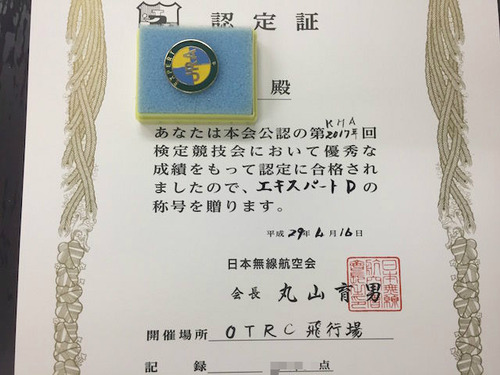 認定証
殿
KHA
あなたは本会公認の第2017年回
検定競技会において優秀な
成績をもって認定に合格され
ましたので、エキスパートDの
称号を贈ります。
平成29年4月16日
日本無線航空会
会長 丸山育男
開催場所 OTRC飛行場
記録 点